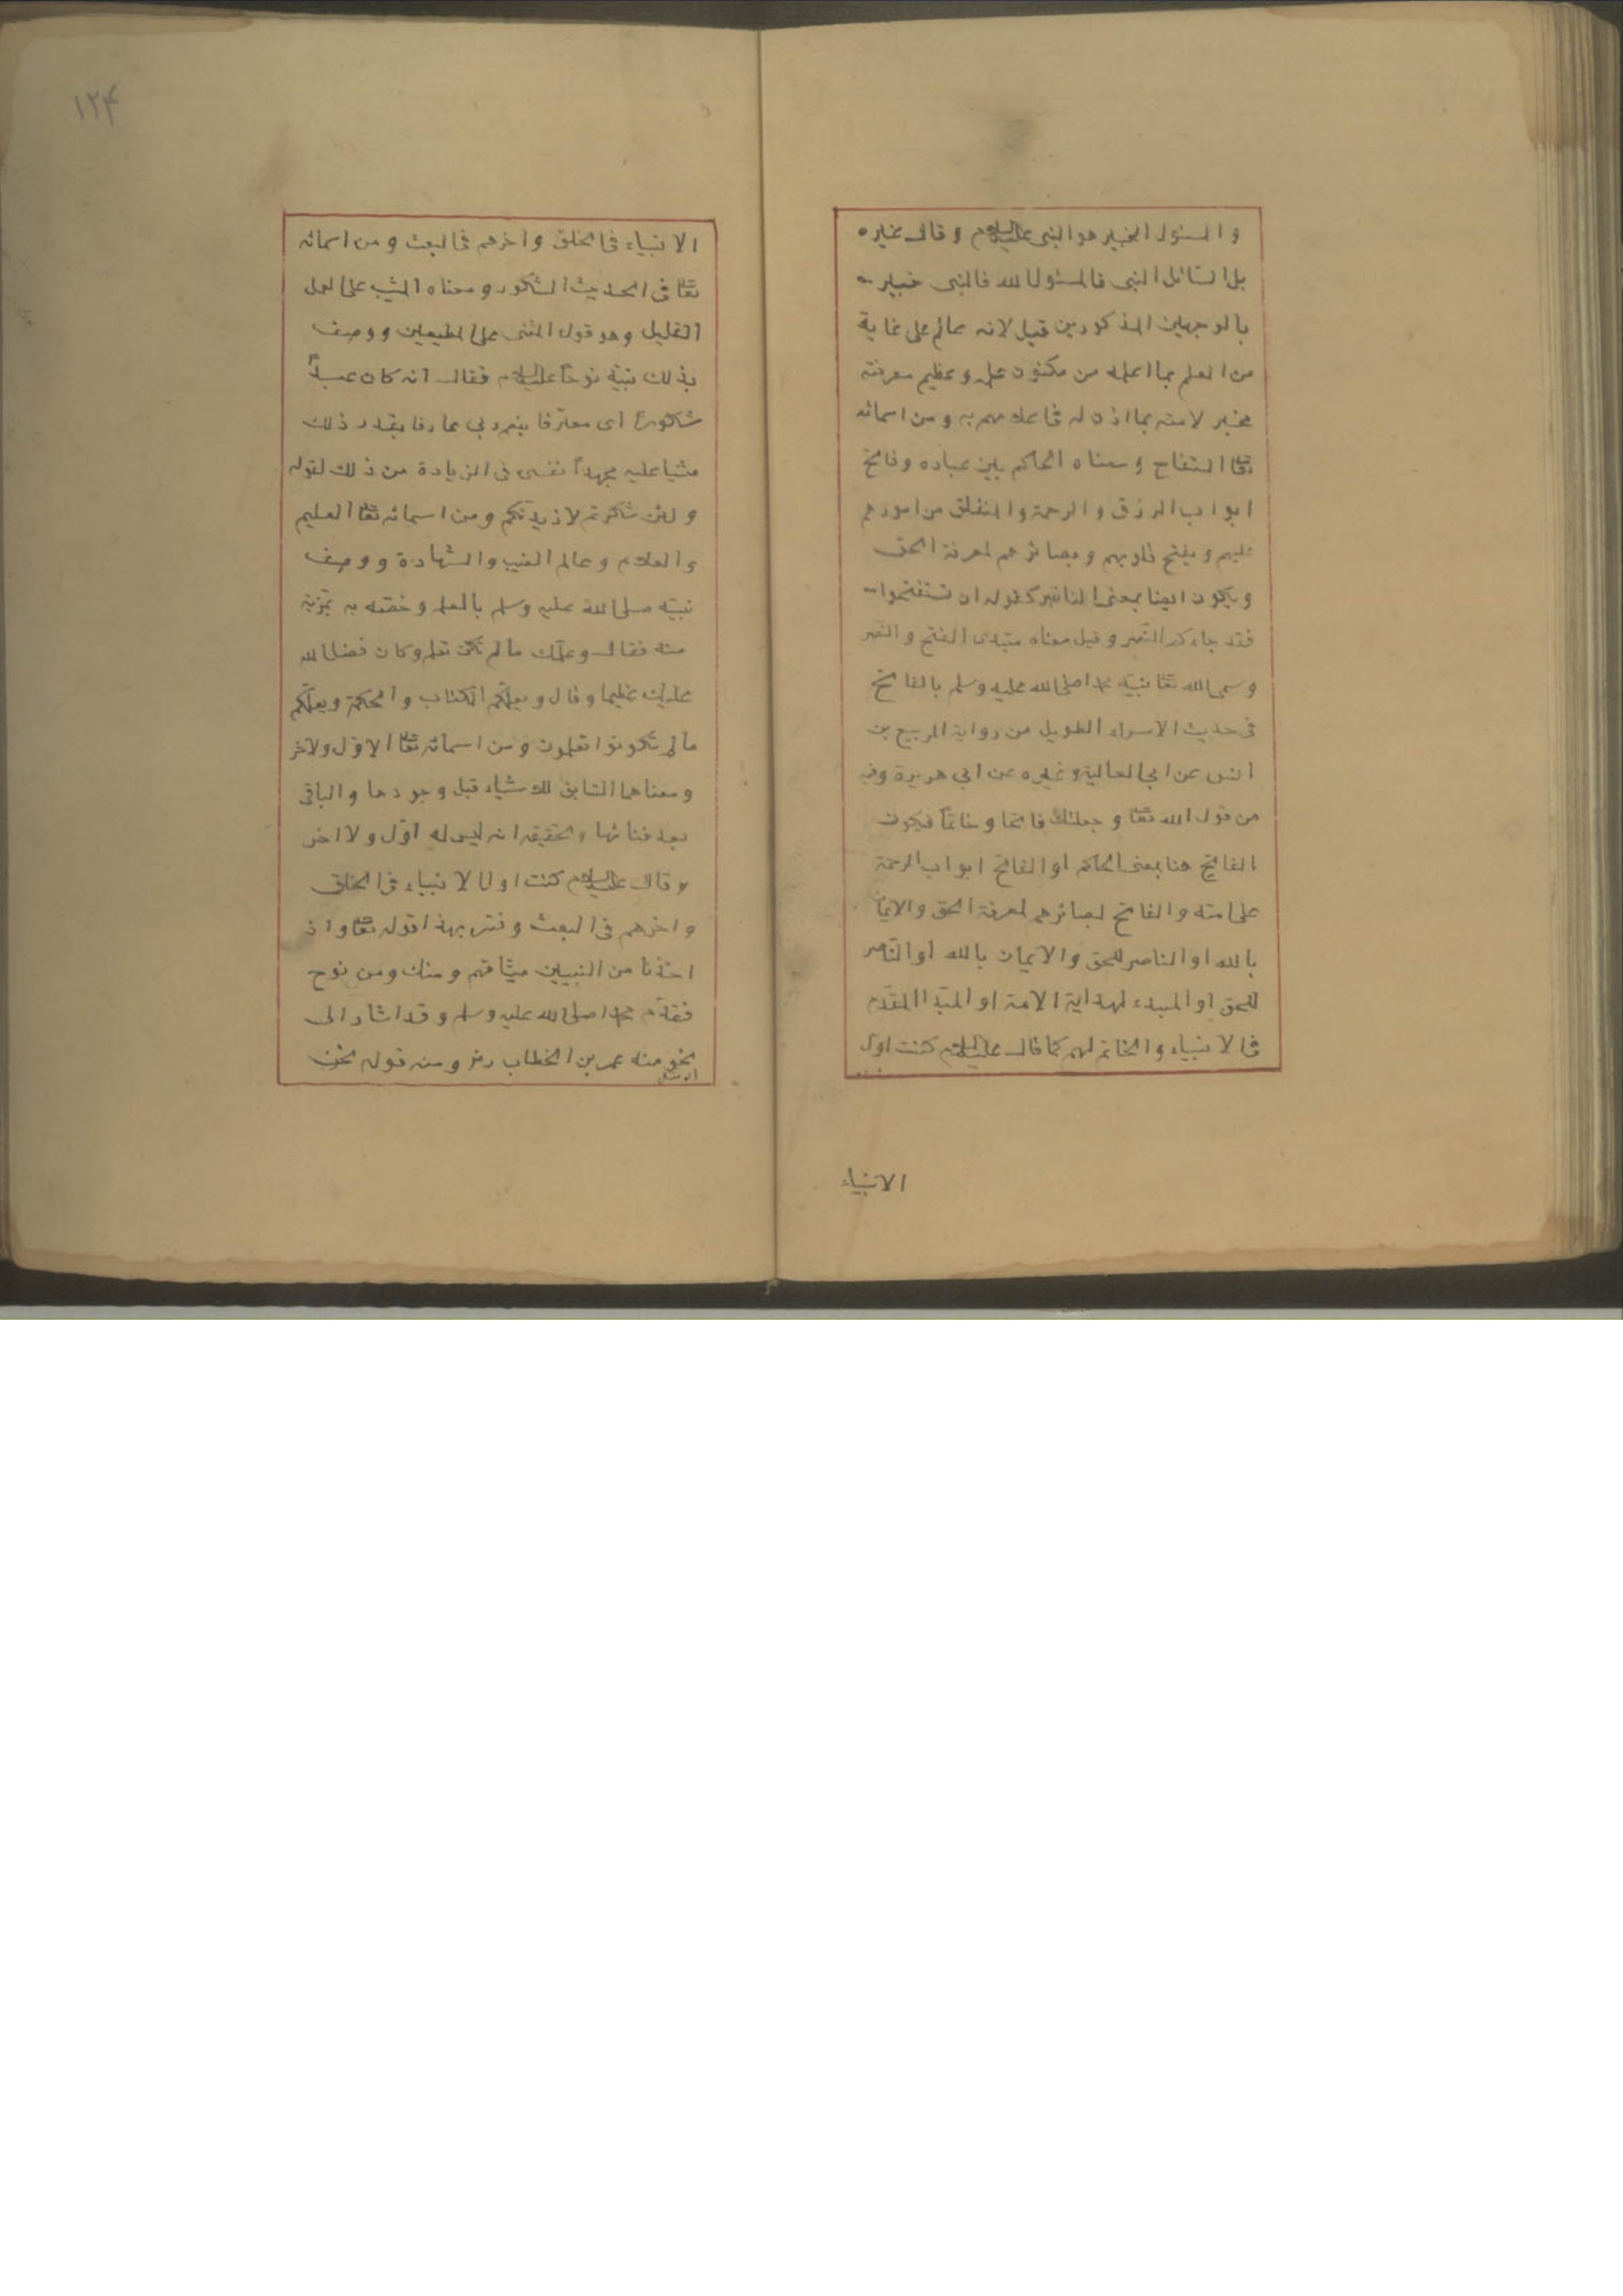 والمسئول الخبير هو النبى عليه السلام وقال غيره
بل السائل النبى فالمسئول الله فالنبى خبير
بالوجهين المذكورين قيل لانه عالم على غاية
من العلم بما اعلمه من مكنون علمه وعظيم معرفته
مخبر لامته بما اذن له فى اعلامهم به ومن اسمائه
تعا الفتاح ومعناه الحاكم بين عباده وفاتح
ابواب الرزق والرحمة والمنغلق من امورهم
عليهم ويفتح قلوبهم وبصائرهم لمعرفة الحق
ويكون ايضا بمعنى الناصر كقوله ان تستفتحوا
فقد جاءكم النصر وقيل معناه مبتدى الفتح والنصر
وسمى الله تعا نبيّه محمدا صلى الله عليه وسلم بالفاتح
فى حديث الاسراء الطويل من رواية الربيع بن
انس عن ابى العالية وغيره عن ابى هريرة وفيه
من قول الله تعا وجعلتك فاتحا وخاتماً فيكون
الفاتح هنا بمعنى الحاكم او الفاتح ابواب الرحمة
على امته والفاتح لبصائرهم لمعرفة الحق والايمان
بالله او الناصر للحق والايمان بالله او الناصر
للحق او المبدء لهداية الامة او المبدّا المقدّم
فى الانبياء والخاتم لهم كما قال عليه السلام كنت اول
الانبياء
١٢۴
الانبياء فى الخلق واخرهم فى البعث ومن اسمائه
تعا فى الحديث الشكور ومعناه المثيب على العمل
القليل وهو قول المثنى على المطيعين ووصف
بذلك نبيّه نوحاً عليه السلام فقال انه كان عبداً
شكورا اى معترفا بنعم ربى عارفا بقدر ذلك
مثنيا عليه مجهداً نفسى فى الزيادة من ذلك لقوله
ولئن شكرتم لازيدنّكم ومن اسمائه تعا العليم
والعلام وعالم الغيب والشهادة ووصف
نبيّه صلى الله عليه وسلم بالعلم وخصّه به بمزية
منه فقال وعلّمك مالم تكن تعلم وكان فضل الله
عليك عظيما وقال ويعلّمكم الكتاب والحكمة ويعلّمكم
مالم تكونوا تعلمون ومن اسمائه تعا الاوّل والاخر
ومعناهما السّابق للاشياء قبل وجودها والباقى
بعد فنائها وتحقيقه انه ليس له اوّل ولا اخر
وقال عليه السلام كنت اول الانبياء فى الخلق
واخرهم فى البعث وفسّر بهذا قوله تعا واذ
اخذنا من النبيين ميثاقهم ومنك ومن نوح
فقدّم محمدا صلى الله عليه وسلم وقد اشار الى
نحو منه عمر بن الخطاب رض ومنه قوله نحن